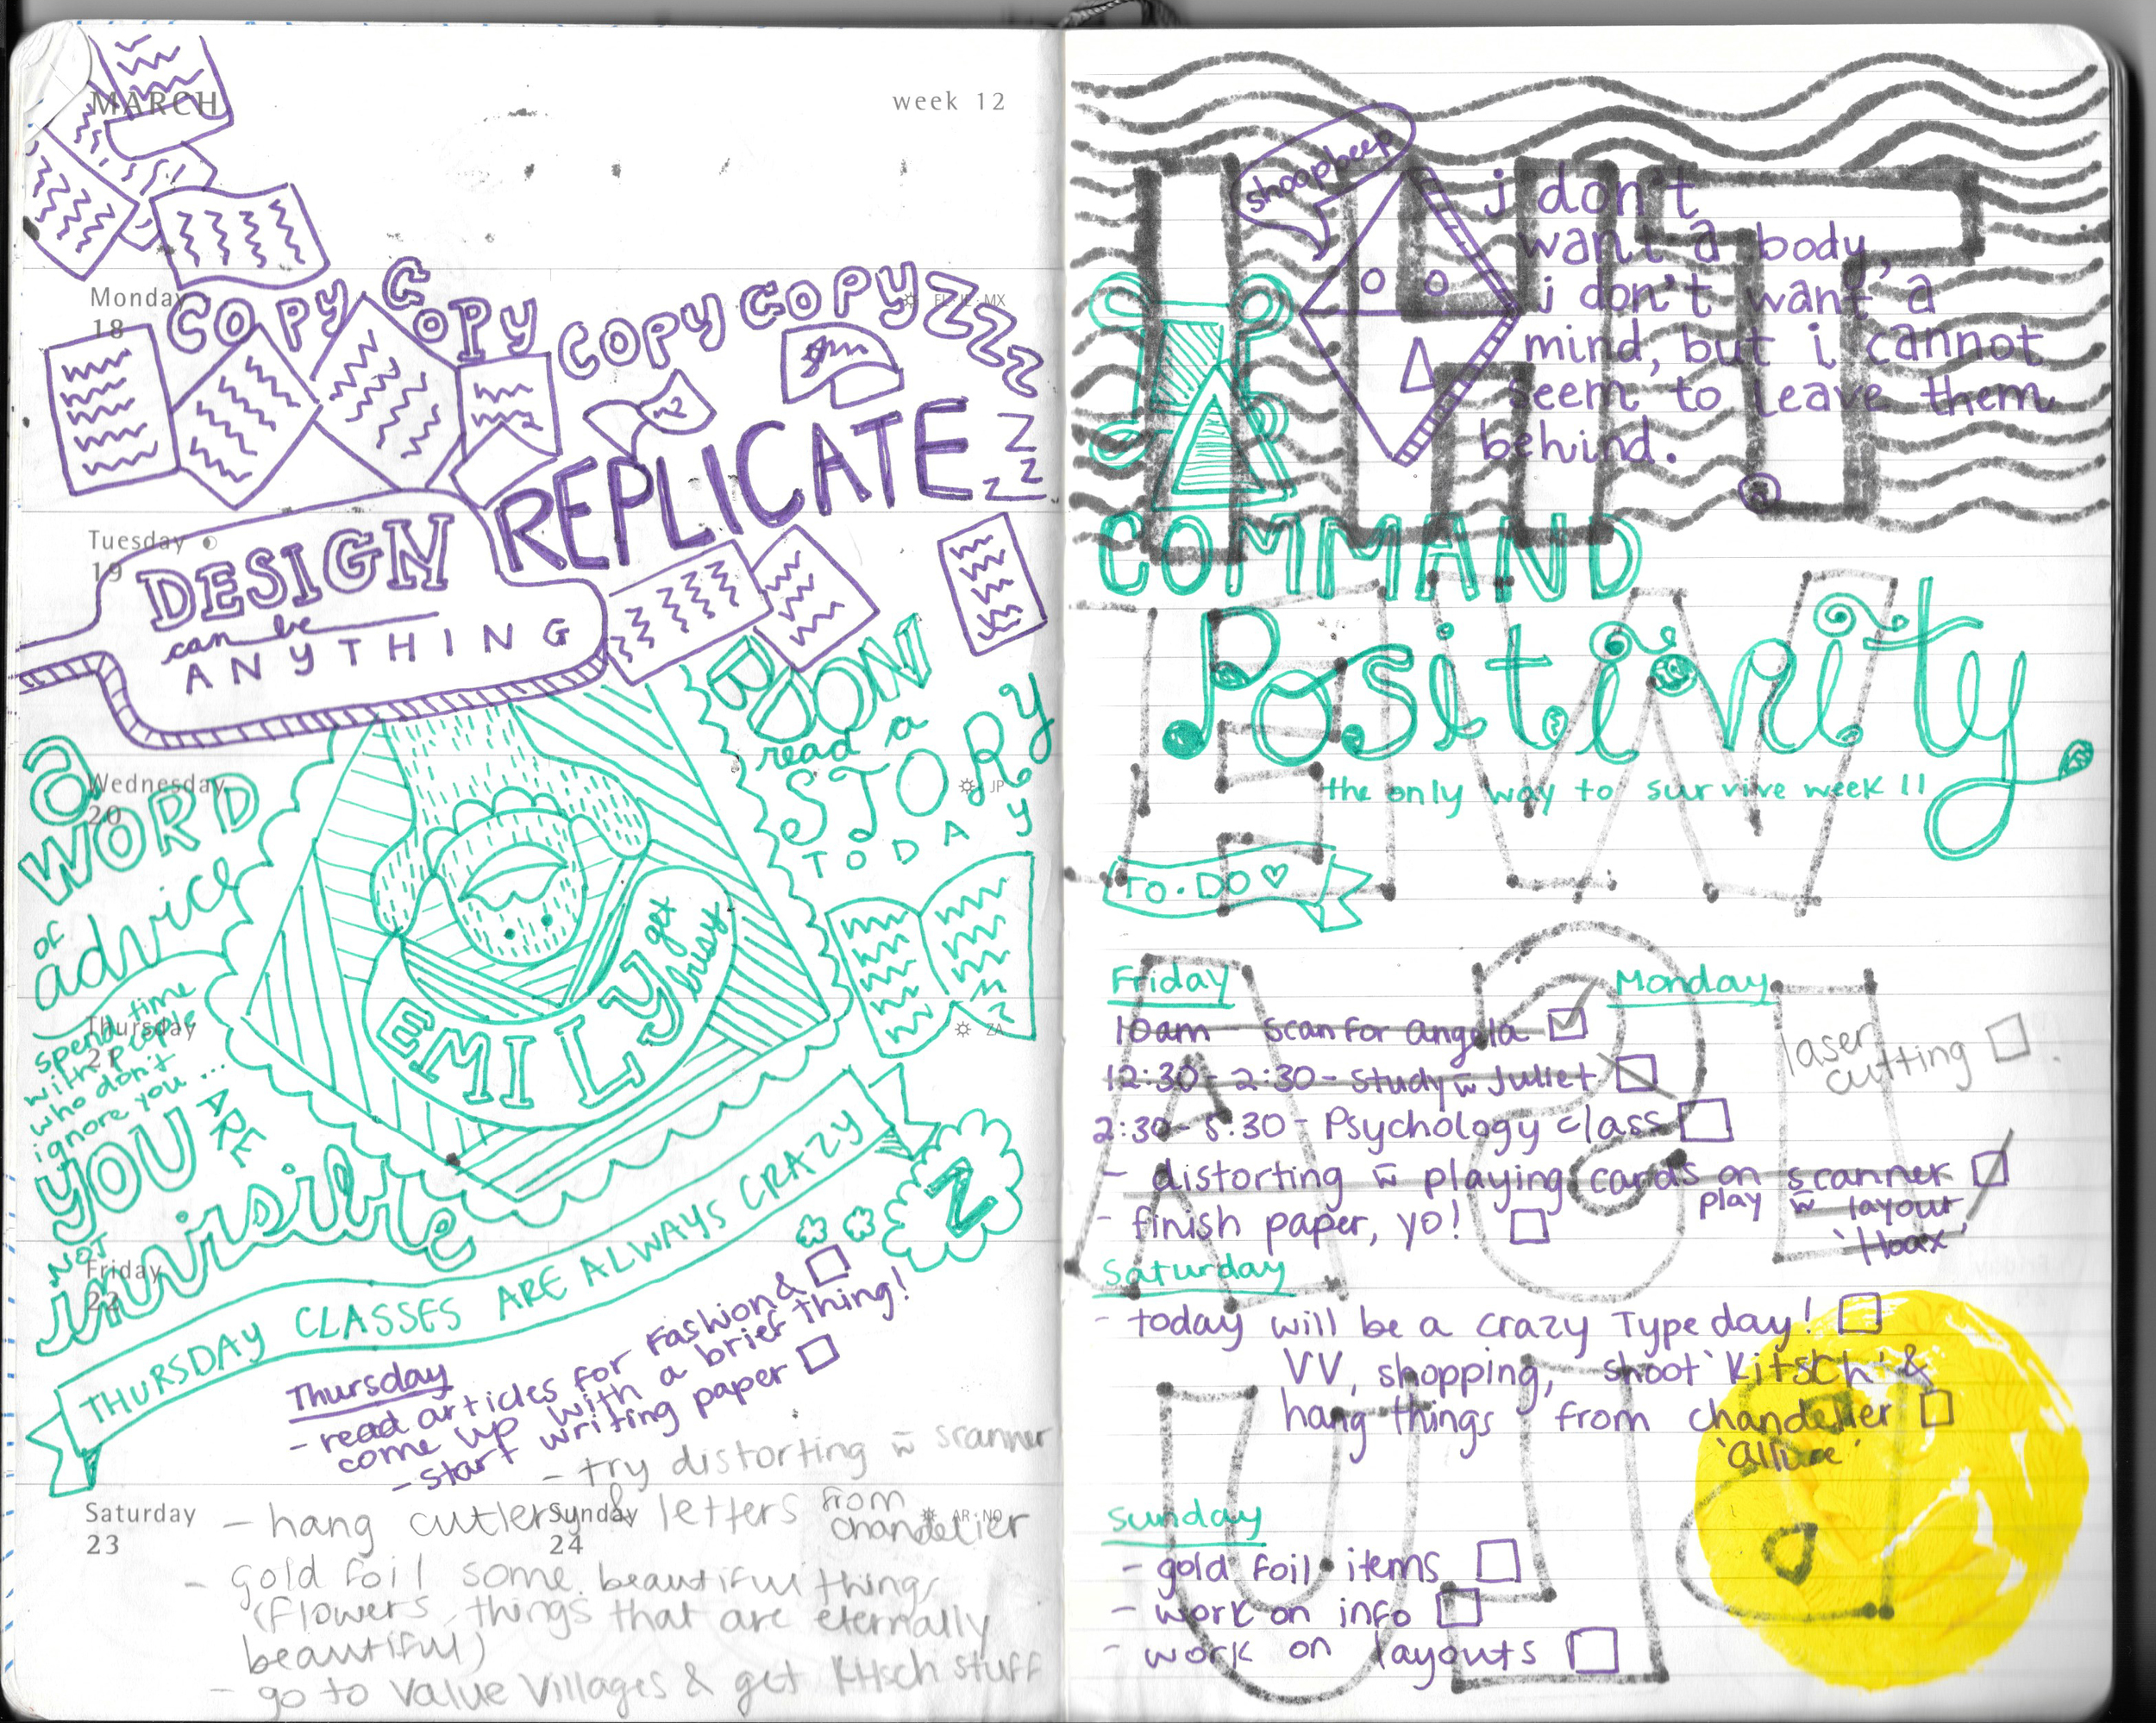 MARCH
week 12
Monday
18
COPY COPY COPY COPY ZZZZ
REPLICATE
Z
Z
Z
Tuesday
19
DESIGN
can be
ANYTHING
DON
read a
STORY
TODAY
Wednesday
20
JP
a
WORD
of
advice
Thursday
21
ZA
spend time
with people
who don't
ignore you...
YOU ARE
NOT
invisible
EMILY
get
busy
Friday
22
THURSDAY CLASSES ARE ALWAYS CRAZY
N
Thursday
- read articles for Fashion &
come up with a brief thing!
- start writing paper
- try distorting w̄ scanner
Saturday
23
Sunday
24
AR·NO
- hang cutlery & letters from
chandelier
- gold foil some beautiful things
(flowers, things that are eternally
beautiful)
- go to Value Villages & get kitsch stuff
shoopbeep
i don't
want a body,
i don't want a
mind, but i cannot
seem to leave them
behind.
COMMAND
Positivity
the only way to survive week 11
TO·DO ♡
Friday
10am - scan for angela
12:30 - 2:30 - study w̄ Juliet
2:30 - 5:30 - Psychology class
- distorting w̄ playing cards on scanner
play w̄ layout
'Hoax'
- finish paper, yo!
Monday
laser
cutting
Saturday
- today will be a crazy Type day!
VV, shopping, shoot 'Kitsch' &
hang things from chandelier
'allure'
Sunday
- gold foil items
- work on info
- work on layouts